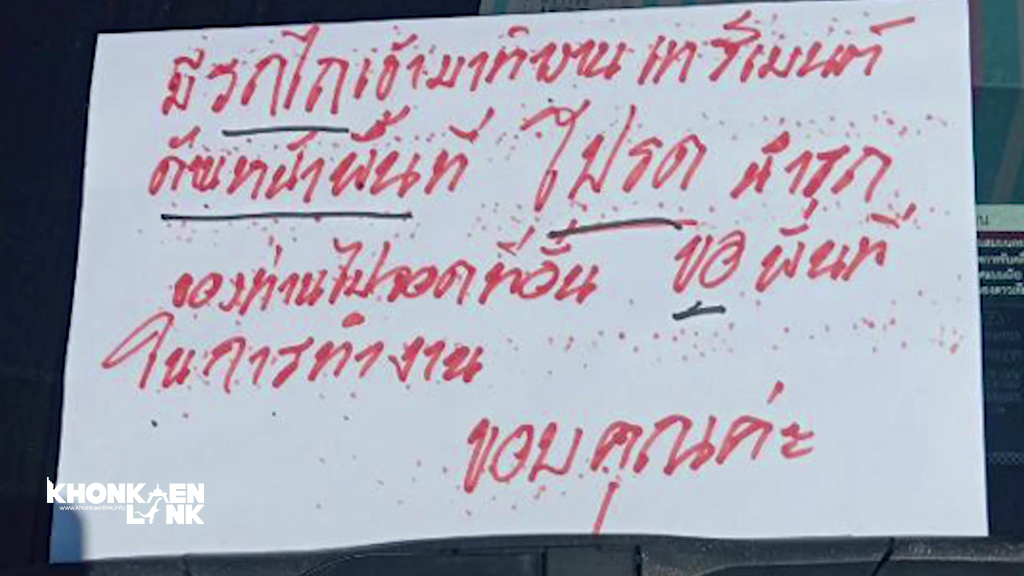 มีรถไถเข้ามาทำงาน เทซีเมนต์
ด้านหน้าพื้นที่ โปรด นำรถ
ของท่านไปจอดที่อื่น ขอ พื้นที่
ในการทำงาน
ขอบคุณค่ะ
KHONKAEN
www.khonkaenlink.info
LINK